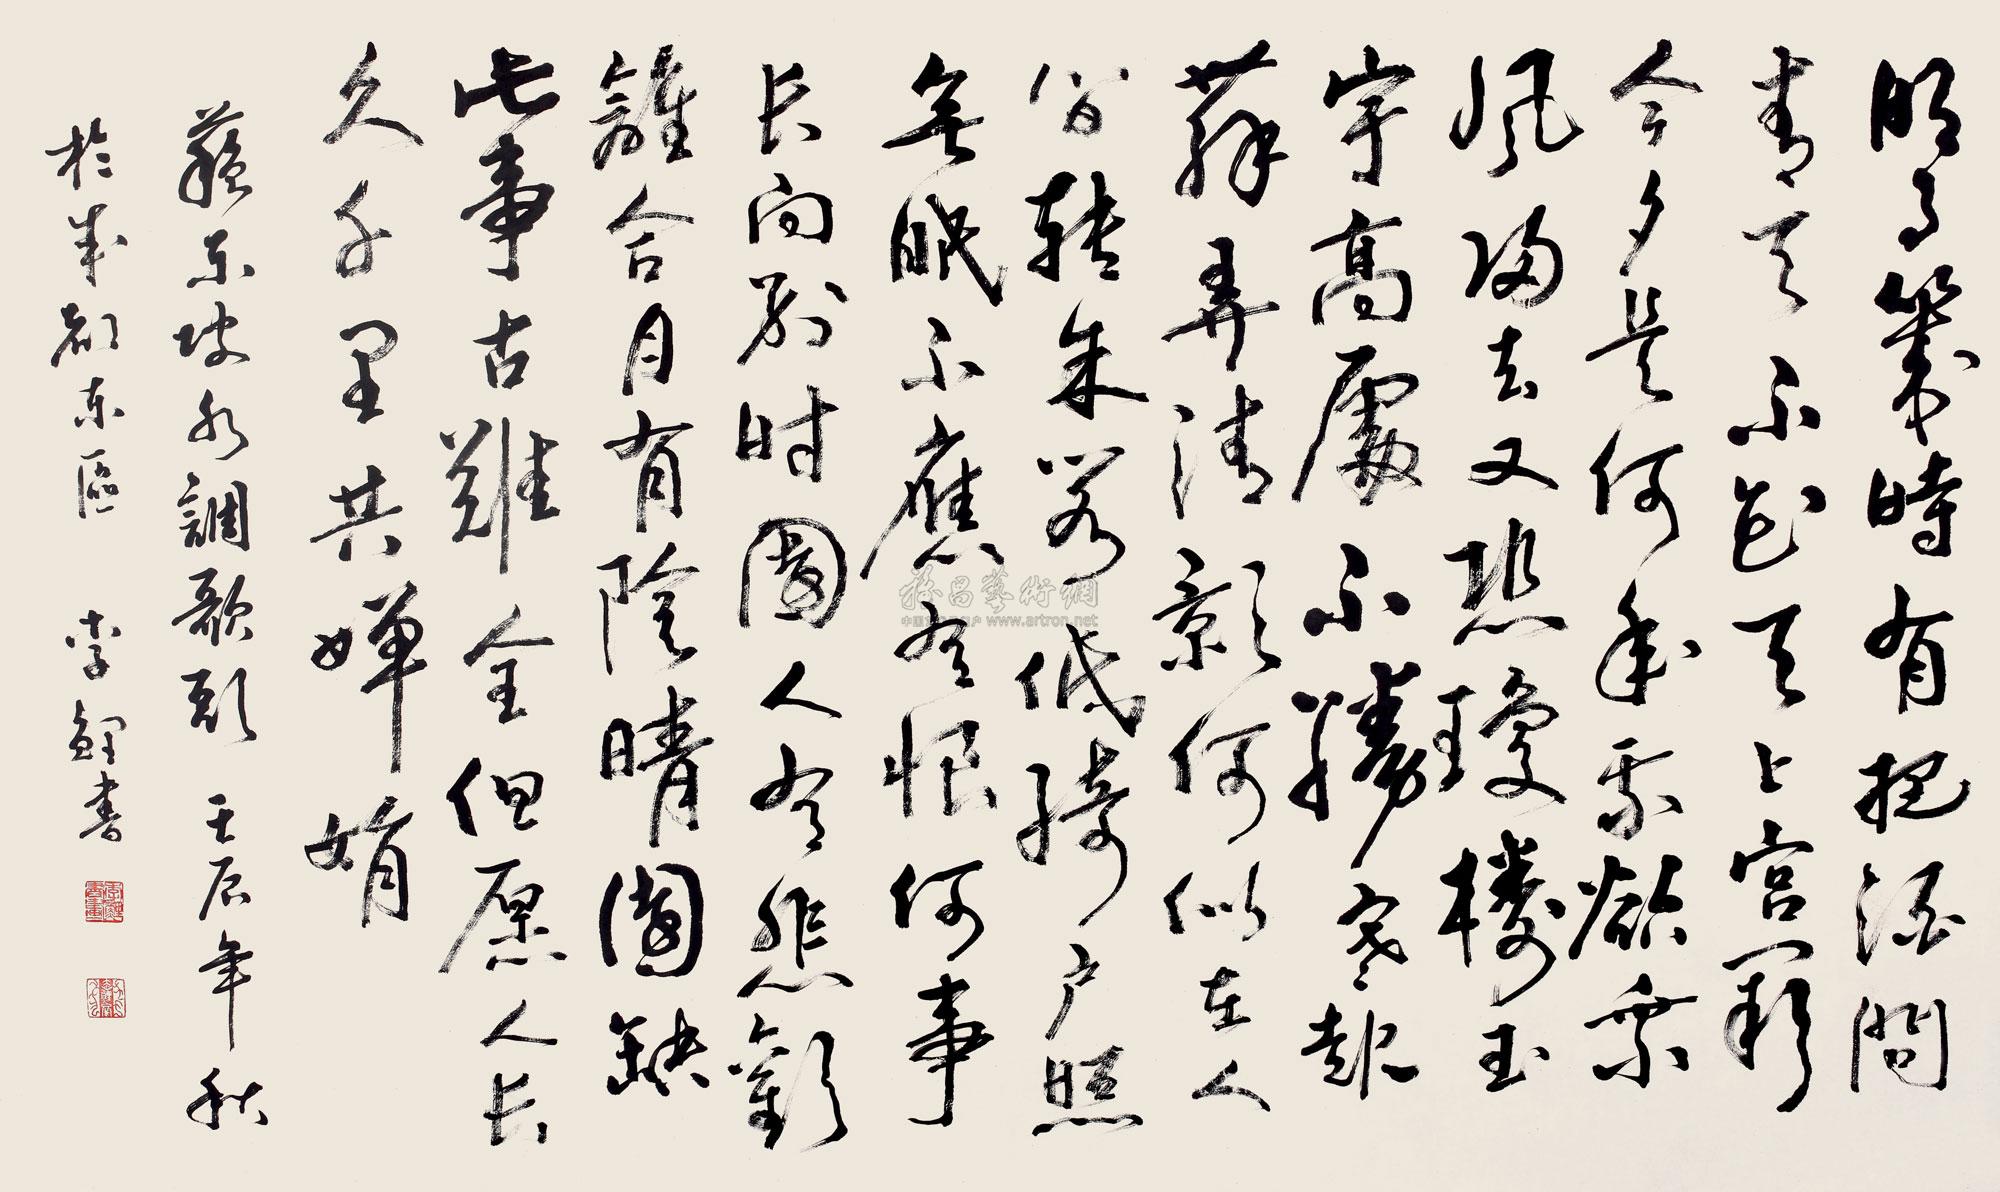 明月幾時有把酒問
青天不知天上宮闕
今夕是何年我欲乘
风歸去又恐瓊樓玉
宇高處不勝寒起
舞弄清影何似在人
间转朱閣低綺户照
無眠不應有恨何事
长向别时圓人有悲歡
離合月有陰晴圓缺
此事古難全但愿人长
久千里共嬋娟
蘇东坡水調歌頭 壬辰年秋
於成都东區 李鯉書
雅昌藝術網
www.artron.net